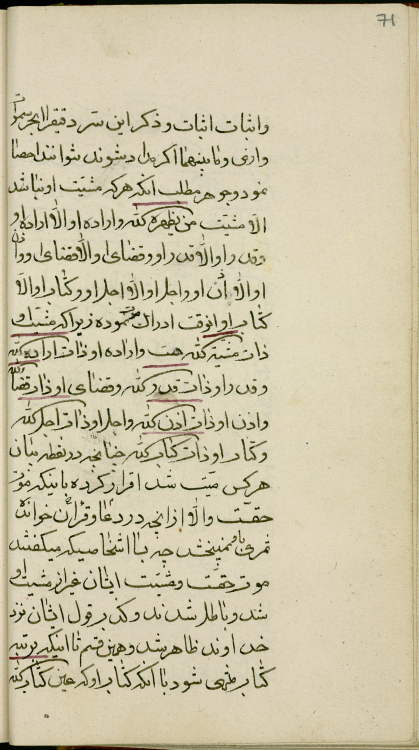 71
واثبات اثبات و ذکر این سر دقیق را ابحر سموات
وارض و مابینهما اکر مداد شوند نتوانند احصا
نمود و جوهر مطلب آنکه هرکه مشیت او نباشد
الا مشیت من یظهره الله واراده او الا اراده او
وقدر او الا قدر او وقضای او الا قضای او واذن
او الا اذن او واجل او الا اجل او و کتاب او الا
کتاب او انوقت ادراک نموده زیرا که مشیت او
ذات مشیة الله هست واراده او ذات اراده الله
وقدر او ذات قدر الله وقضای او ذات قضاء الله
واذن او ذات اذن الله واجل او ذات اجل الله
وکتاب او ذات کتاب الله چنانچه در نقطه بیان
هرکس میت شد اقرار کرده باینکه موت
حقست والا ازانچه در دعا وقرآن خوانده
ثمری باو نمیبخشد چه بسا اشخاصیکه میگفتند
موت حقست ومشیت ایشان غیر از مشیت او
شد وباطل شدند وکذب قول ایشان نزد
خداوند ظاهر شد وهمین قسم تا اینکه برتبه
کتاب منتهی شود با آنکه کتاب او که عین کتاب الله